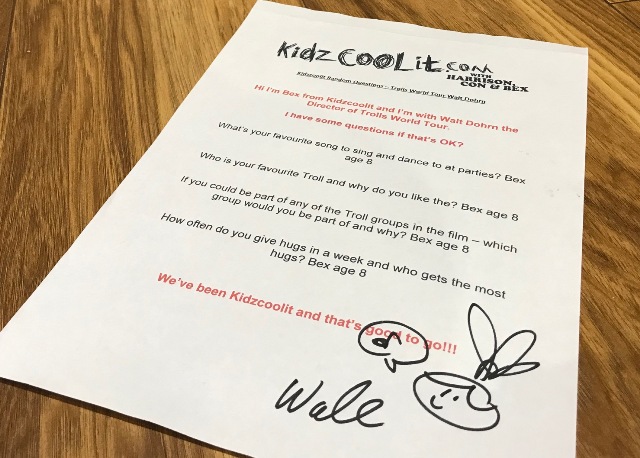 Kidzcoolit.com
WITH
HARRISON,
CON & BEX
Kidzcoolit Random Questions – Trolls World Tour Walt Dohrn
Hi I'm Bex from Kidzcoolit and I'm with Walt Dohrn the
Director of Trolls World Tour.
I have some questions if that's OK?
What's your favourite song to sing and dance to at parties? Bex
age 8
Who is your favourite Troll and why do you like the? Bex age 8
If you could be part of any of the Troll groups in the film – which
group would you be part of and why? Bex age 8
How often do you give hugs in a week and who gets the most
hugs? Bex age 8
We've been Kidzcoolit and that's good to go!!!